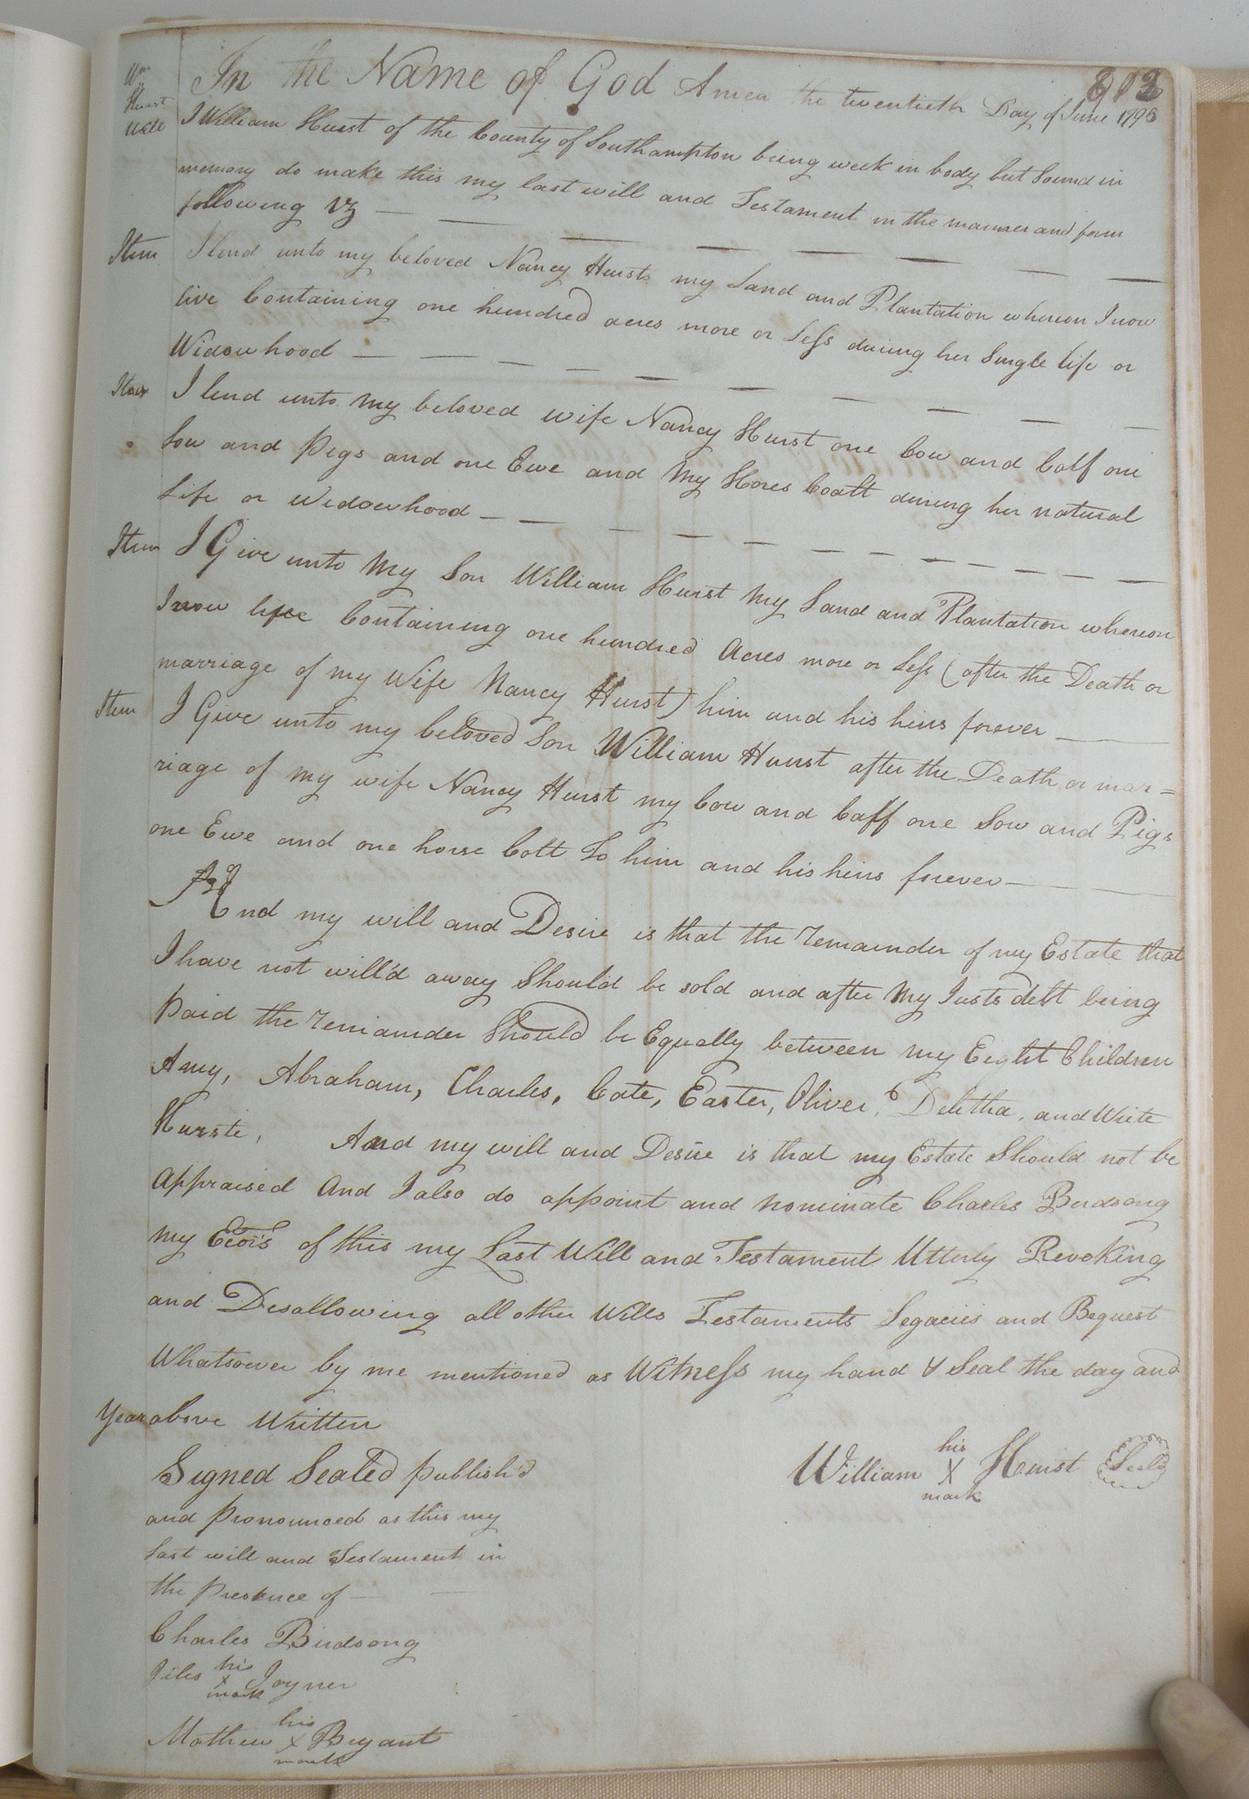 Wm
Hurst
Will
In the Name of God Amen the twentieth Day of June 179
I William Hurst of the County of Southampton being week in body but Sound in
memory do make this my last will and Testament in the manner and form
following Vz
Item I lend unto my beloved Nancy Hursts my Land and Plantation whereon I now
live Containing one hundred acres more or Less during her Single life or
Widowhood
Item I lend unto my beloved wife Nancy Hurst one Cow and Calf one
Sow and Pigs and one Ewe and My Hores Coalt during her natural
Life or Widowhood
Item I Give unto My Son William Hurst My Land and Plantation whereon
I now live Containing one hundred Acres more or Less (after the Death or
marriage of my Wife Nancy Hurst) him and his heirs forever
Item I Give unto my beloved Son William Hurst after the Death or mar=
riage of my wife Nancy Hurst my Cow and Caff one Sow and Pigs
one Ewe and one horse Colt To him and his heirs forever
And my will and Desire is that the remainder of my Estate that
I have not will'd away Should be sold and after My Justs debt being
Paid the remainder Should be Equally between my Eeight Children
Amy, Abraham, Charles, Cate, Easter, Oliver, Delitha, and Write
Hursts, And my will and Desire is that my Estate Should not be
Appraised And I also do appoint and nominate Charles Birdsong
my Exor's of this my Last Will and Testament Utterly Revoking
and Desallowing all other Wills Testaments Legacies and Bequest
Whatsoever by me mentioned as Witness my hand & Seal the day and
Year above Written
William his X mark Hurst Seal
Signed Sealed publish'd
and Pronounced as this my
Last will and Testament in
the Presence of
Charles Birdsong
Jiles his x mark Joyner
Mathew his x mark Bryant